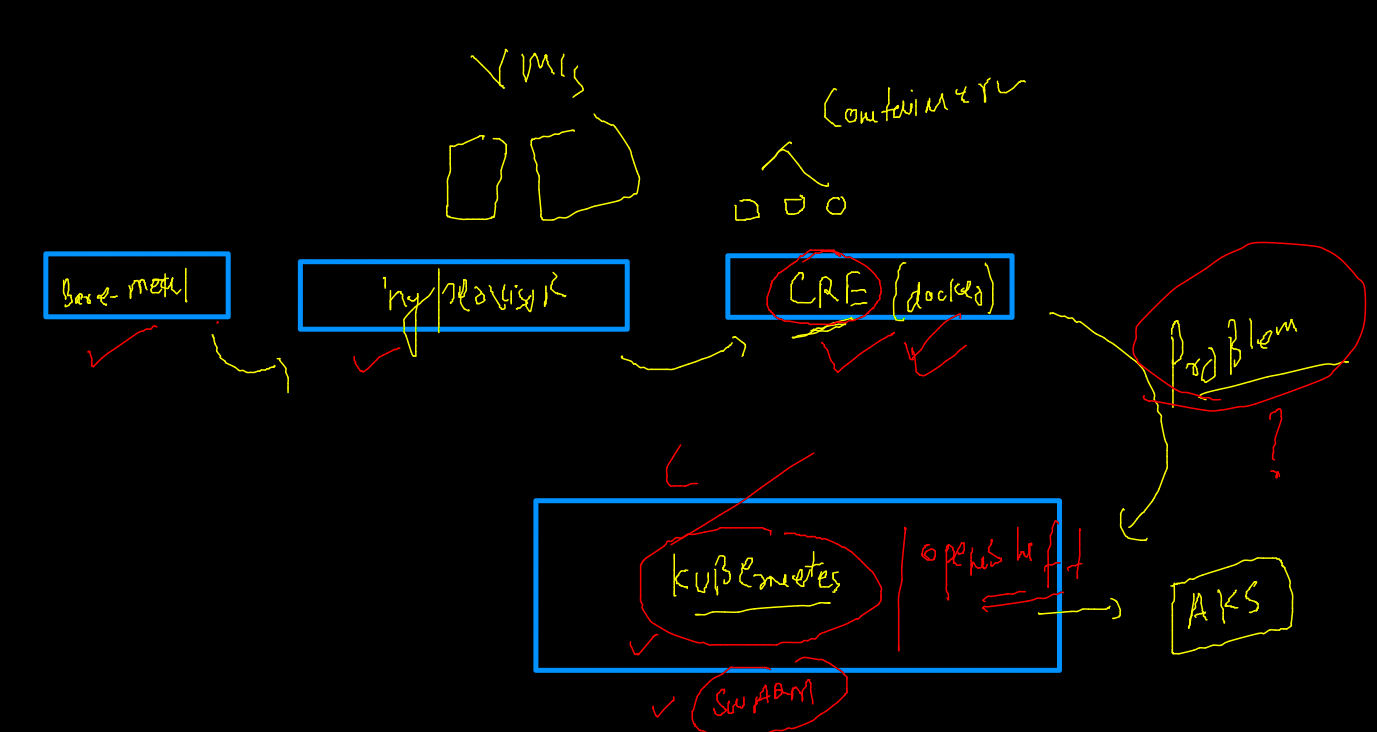 VM's
Containers
Bare-metal
hypervisor
CRE (docker)
Problem
?
Kubernetes
openshift
AKS
SWARM